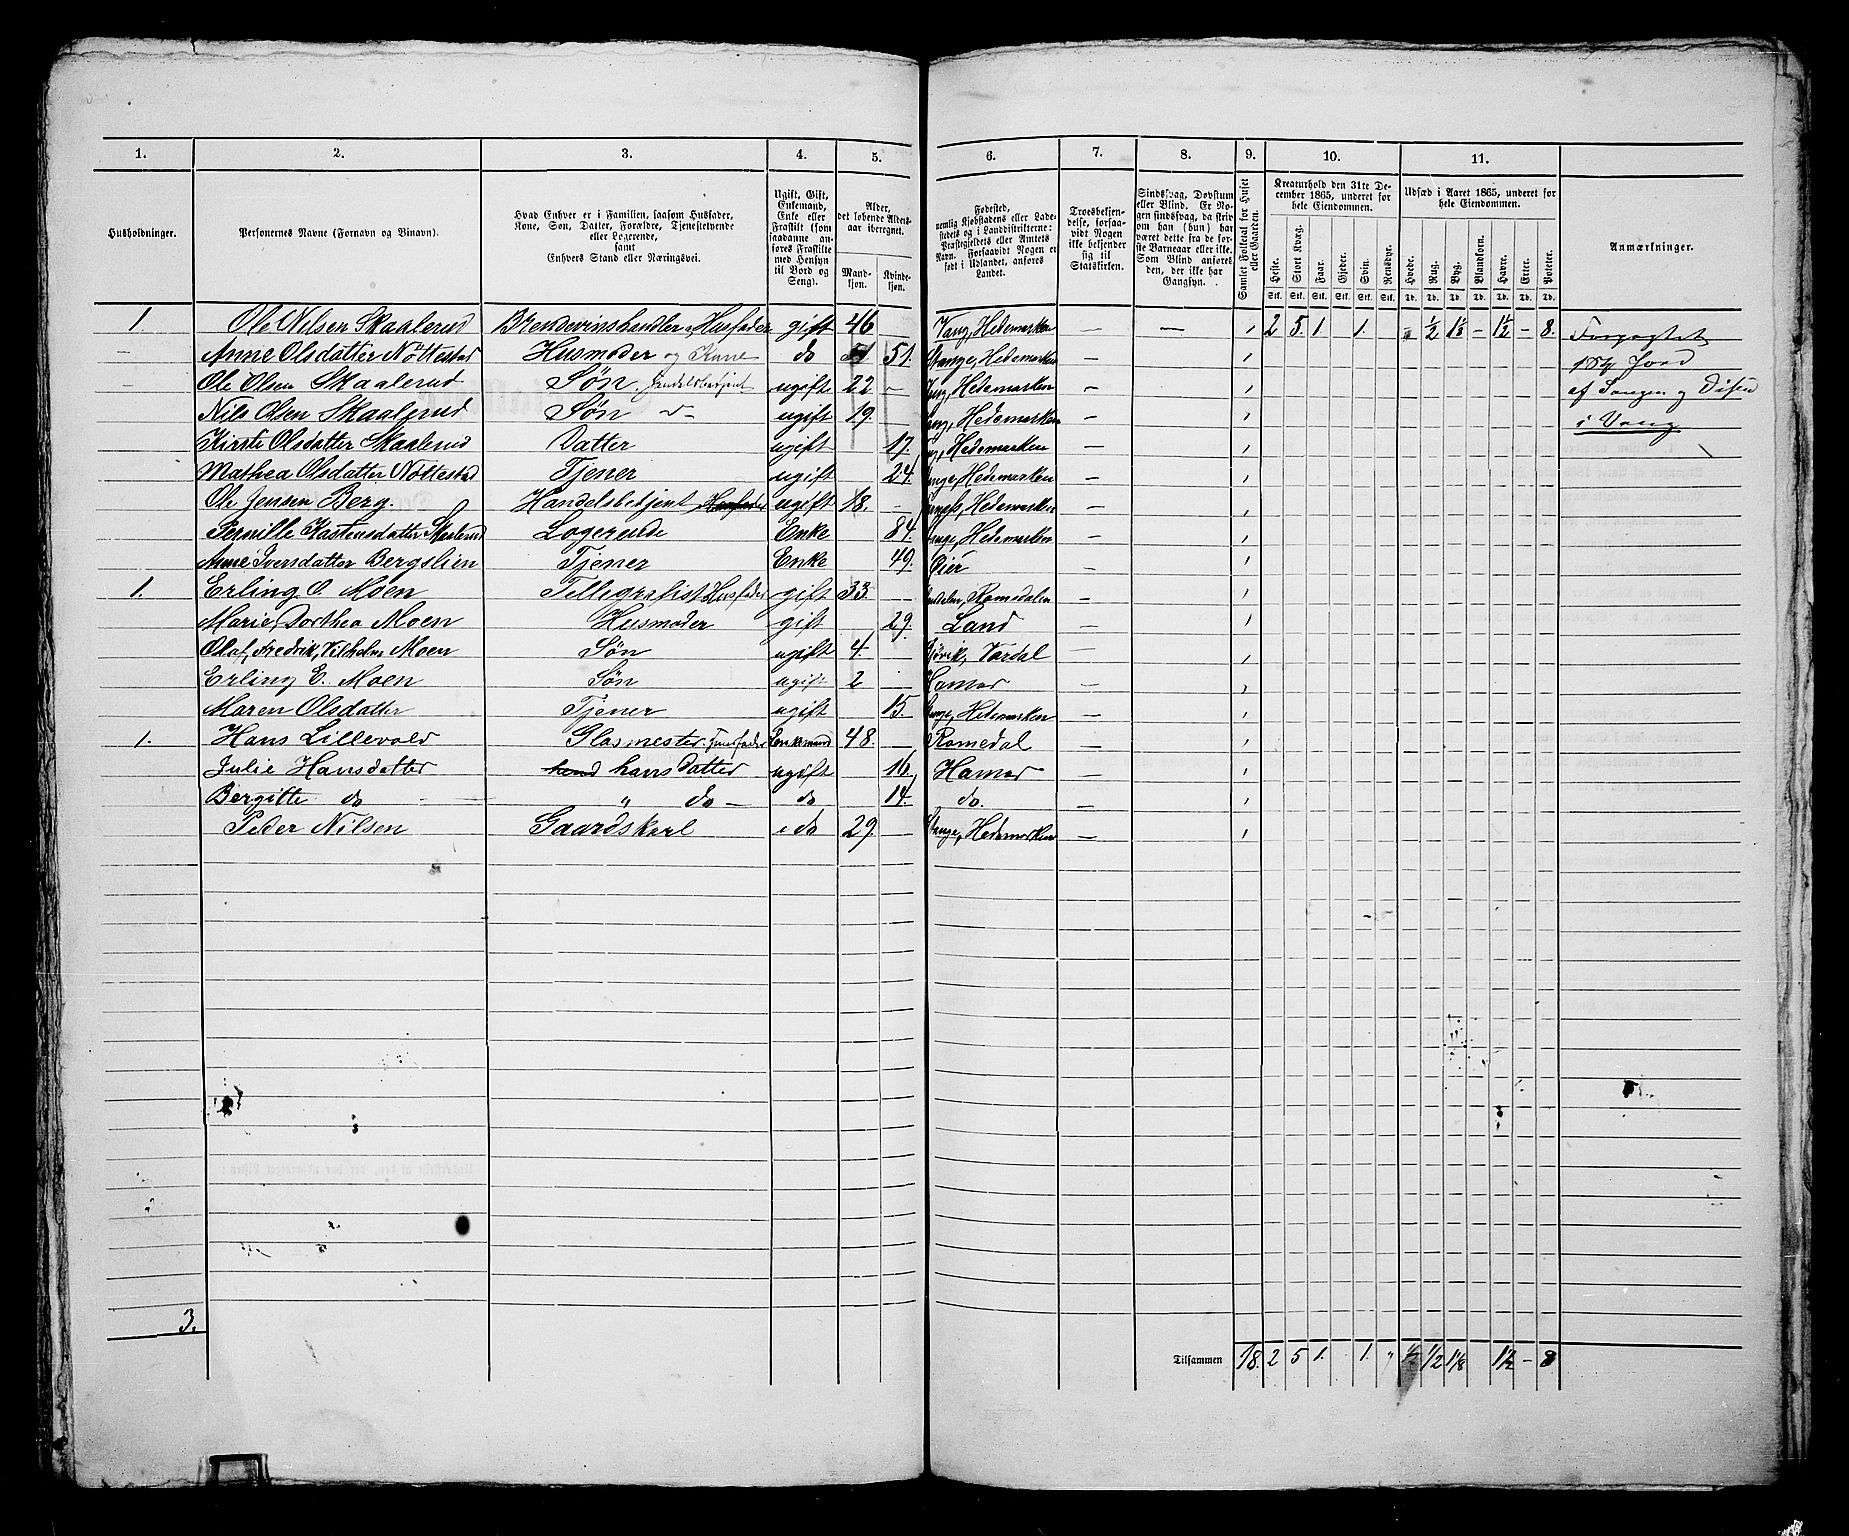 1. 2. 3. 4. 5. 6. 7. 8. 9. 10. 11.
Husholdninger.
Personernes Navne (Fornavn og Binavn).
Hvad Enhver er i Familien, saasom Husfader,
Kone, Søn, Datter, Forældre, Tjenestetyende
eller Logerende,
samt
Enhvers Stand eller Næringsvei.
Ugift, Gift,
Enkemand,
Enke eller
Fraskilt (som
saadanne an-
føres Fraskilte
med Hensyn
til Bord og
Seng).
Alder,
det løbende Alders-
aar iberegnet.
Mand-
kjøn.
Kvinde-
kjøn.
Fødested,
nemlig Kjøbstadens eller Lade-
stedets og i Landdistrikterne:
Præstegjeldets eller Amtets
Navn. Forsaavidt Nogen er
født i Udlandet, anføres
Landet.
Troesbekjen-
delse, forsaa-
vidt Nogen
ikke bekjender
sig til
Statskirken.
Sindssvag, Døvstum
eller Blind. Er No-
gen sindssvag, da skriv
om han (hun) har
været dette fra de før-
ste Barneaar eller ikke.
Som Blind anføres
den, der ikke har
Gangsyn.
Samlet Folketal for Huset
eller Gaarden.
Kreaturhold den 31te De-
cember 1865, underet for
hele Eiendommen.
Heste. Stort Kvæg. Faar. Gjeder. Svin. Rensdyr.
Stk. Stk. Stk. Stk. Stk. Stk.
Udsæd i Aaret 1865, underet for
hele Eiendommen.
Hvede. Rug. Byg. Blandkorn. Havre. Erter. Poteter.
Td. Td. Td. Td. Td. Td. Td.
Anmærkninger.
1. Ole Nilsen Skaalerud Brendevinshandler Husfader gift 46 — Vang, Hedemarken — — 1 2 5 1. 1. ½ 1⅛ — 1½ — 8. Forpagtet
— Anne Olsdatter Nöttestad Husmoder og Kone do 51. Stange, Hedemarken — 1 Jord
— Ole Olsen Skaalerud Søn Handelsbetjent ugift 22 — Vang, Hedemarken — 1 af og Disen
Nils Olsen Skaalerud Søn do ugift 19. Vang, Hedemarken — 1 i Vang
Kirsti Olsdatter Skaalerud Datter ugift 17. Hedemarken — 1
Mathea Olsdatter Nöttestad Tjener ugift 24. Stange, Hedemarken — 1
Ole Jensen Berg. Handelsbetjent Husfader ugift 18. — Hedemarken — 1
Pernille Kastensdatter Skaalerud Logerende Enke 84. Stange, Hedemarken — 1
Anne Iversdatter Bergslien Tjener Enke 49. Öier — 1
1. Erling O. Moen Tellegrafist Husfader gift 33. — Romsdalen — 1
Marie Dorthea Moen Husmoder gift 29. Land — 1
Olaf, Fredrik, Vilhelm Moen Søn ugift 4. Gjövik, Vardal — 1
Erling E. Moen Søn ugift 2 — Hamar — 1
Maren Olsdatter Tjener ugift 15. Stange, Hedemarken — 1
1. Hans Lillevold Glasmester Husfader Enkemand 48. — Romedal — 1
Julie Hansdatter hans Datter ugift 16 Hamar — 1
Bergitte do — " do — do 14. do. — 1
Peder Nilsen Gaardskarl do 29. — Stange, Hedemarken — 1
3.
Tilsammen 18. 2 5 1. 1. " ½ ½ 1⅛ 1½ — 8